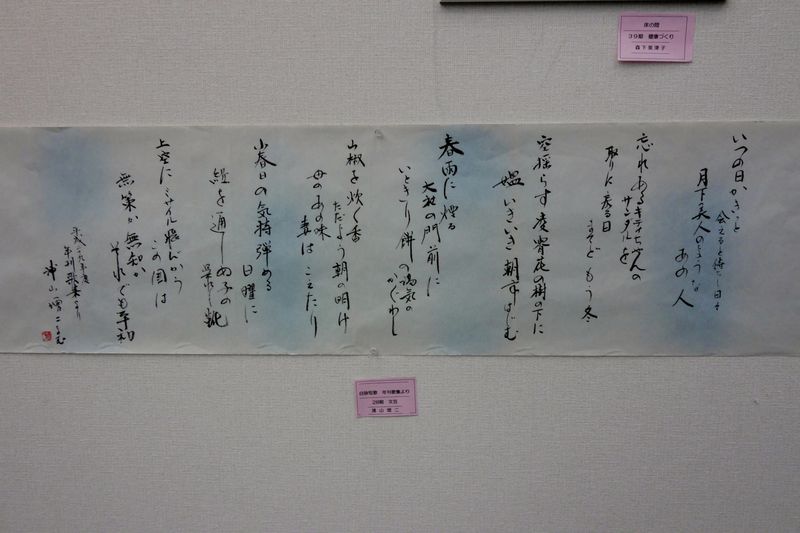 いつの日かきっと
会えると待ちし日々
月下美人のような
あの人
忘れあるキティちゃんの
サンダルを
取りに来る日
もう冬
空揺らす凌霄花の樹の下に
媼いきいき朝市
春雨に煙る
大社の門前に
いときり餅の湯気の
かぐわし
山椒を炊く香
ただよう朝の明け
母のあの味
妻はこえたり
小春日の気持弾める
日曜に
組を通しぬ子の
靴
上空にミサイル飛んだから
この国は
無策か無知か
それでも平和
平成二九年度
年刊歌集より
床の間
39期 健康づくり
森下美津子
自詠短歌 年刊歌集より
28期 文芸
浦山増二